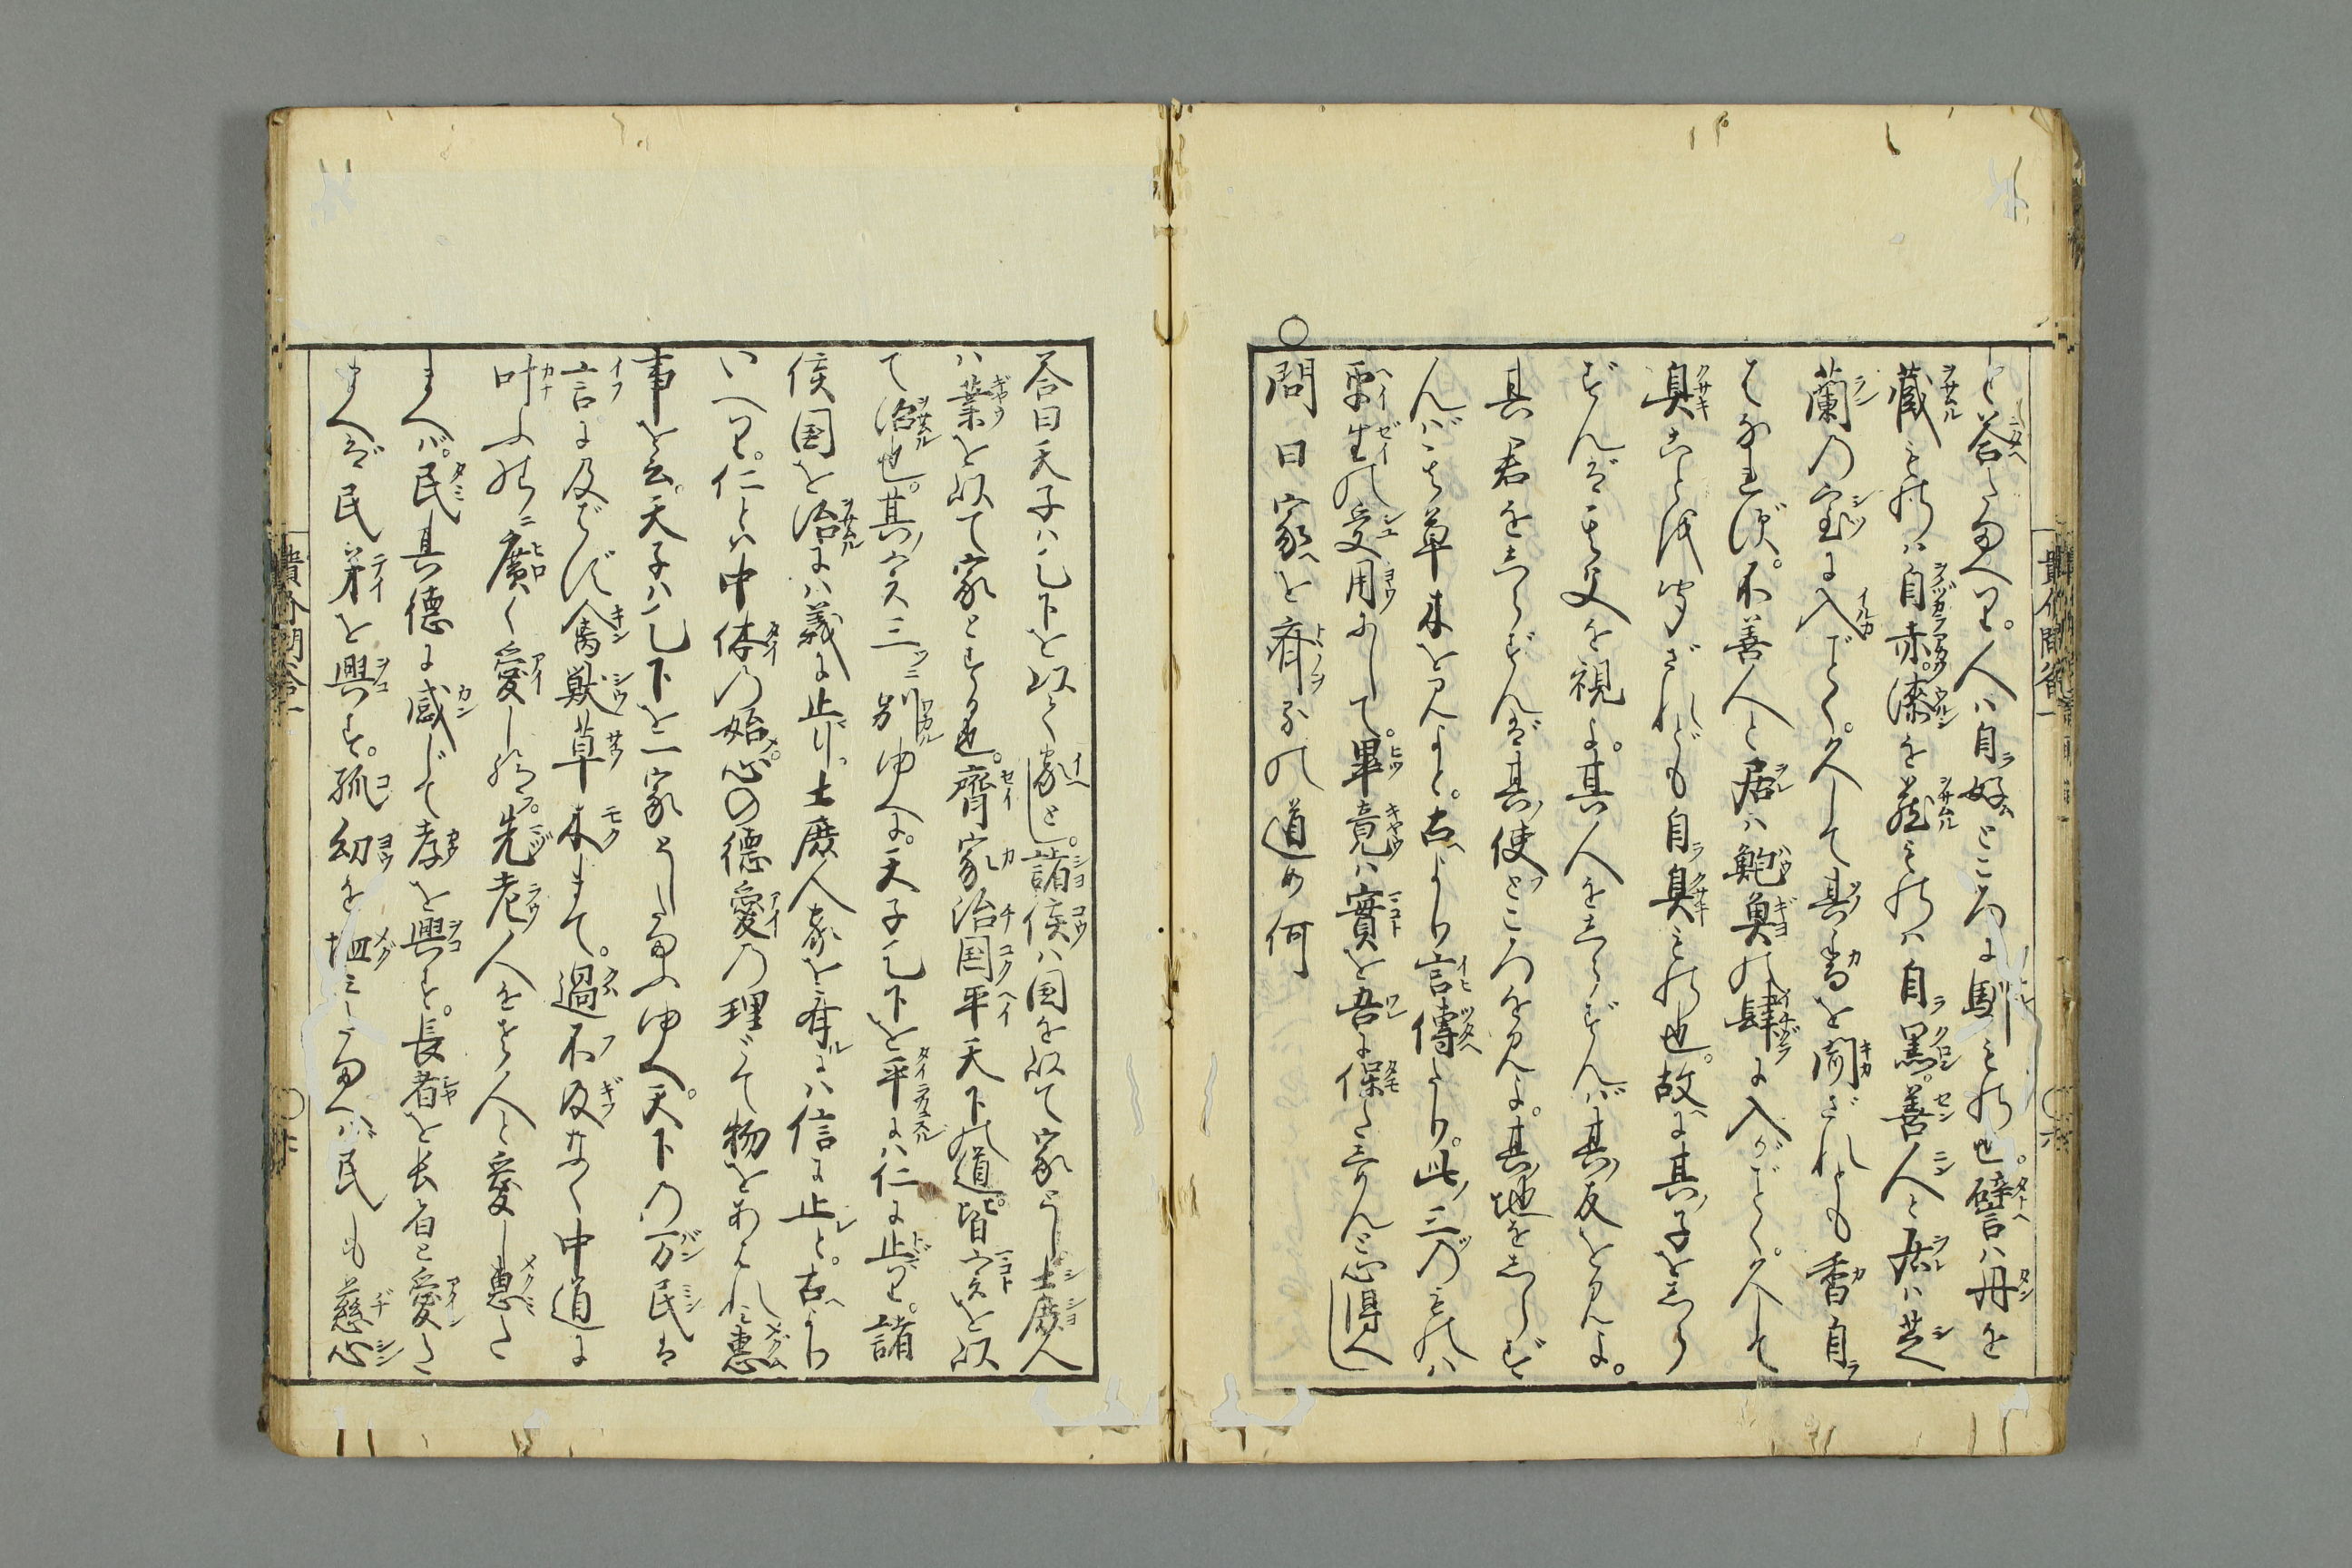 と答たまへり。人は自好ところに馴るもの也。譬は丹を
蔵るものは自赤。漆を蔵るものは自黒。善人と居は芝
蘭の室に入ごとく。久して其香を聞ざれども香自
はなはず。不善人と居は鮑魚の肆に入がごとく。久して
臭ことは聞ざれども自臭もの也。故に其子をしら
ずんば其父を視よ。其人をしらずんば其友を見よ。
其君をしらずんば其使ところを見よ。其地をしらず
んば其草木を見よと。古より言傳たり。此三のものは
平生の受用にして。畢竟は實を吾に保たんと心得べし
○問曰家を齊るの道如何
答曰天子は天下を以て家とし。諸侯は国を以て家とし士庶人
は業を以て家とする也。齊家治国平天下の道。皆実を以
て治也。其実三に別ゆへに。天子天下を平には仁に止り。諸
侯国を治には義に止り。士庶人家を齊には信に止と。古より
いへり。仁とは中体の始。心の徳愛の理にて物をあはれみ恵
事を云。天子は天下を一家としたまふゆへ。天下の万民は
言に及ばず禽獣草木まで。過不及なく中道に
叶ふやうに廣く愛し給ふ。先老人を老人と愛し恵た
まへば。民其徳に感じて孝を興す。長者を長者と愛た
まへば民弟を興す。孤幼を恤みたまへば民も慈心
貴介問答一
貴介問答一